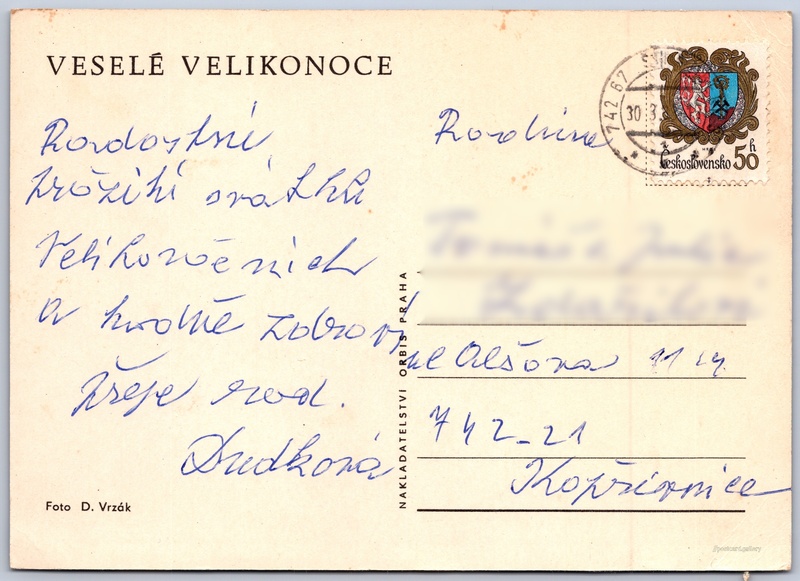 VESELÉ VELIKONOCE
Radostné
prožití svátků
Velikonočních
a hodně zdraví
přeje rod.
Dudková
Foto D. Vrzák
NAKLADATELSTVÍ ORBIS PRAHA
742 67
30 3
Československo 50 h
Rodina
ul Alšova 11 14
742-21
Kopřivnice